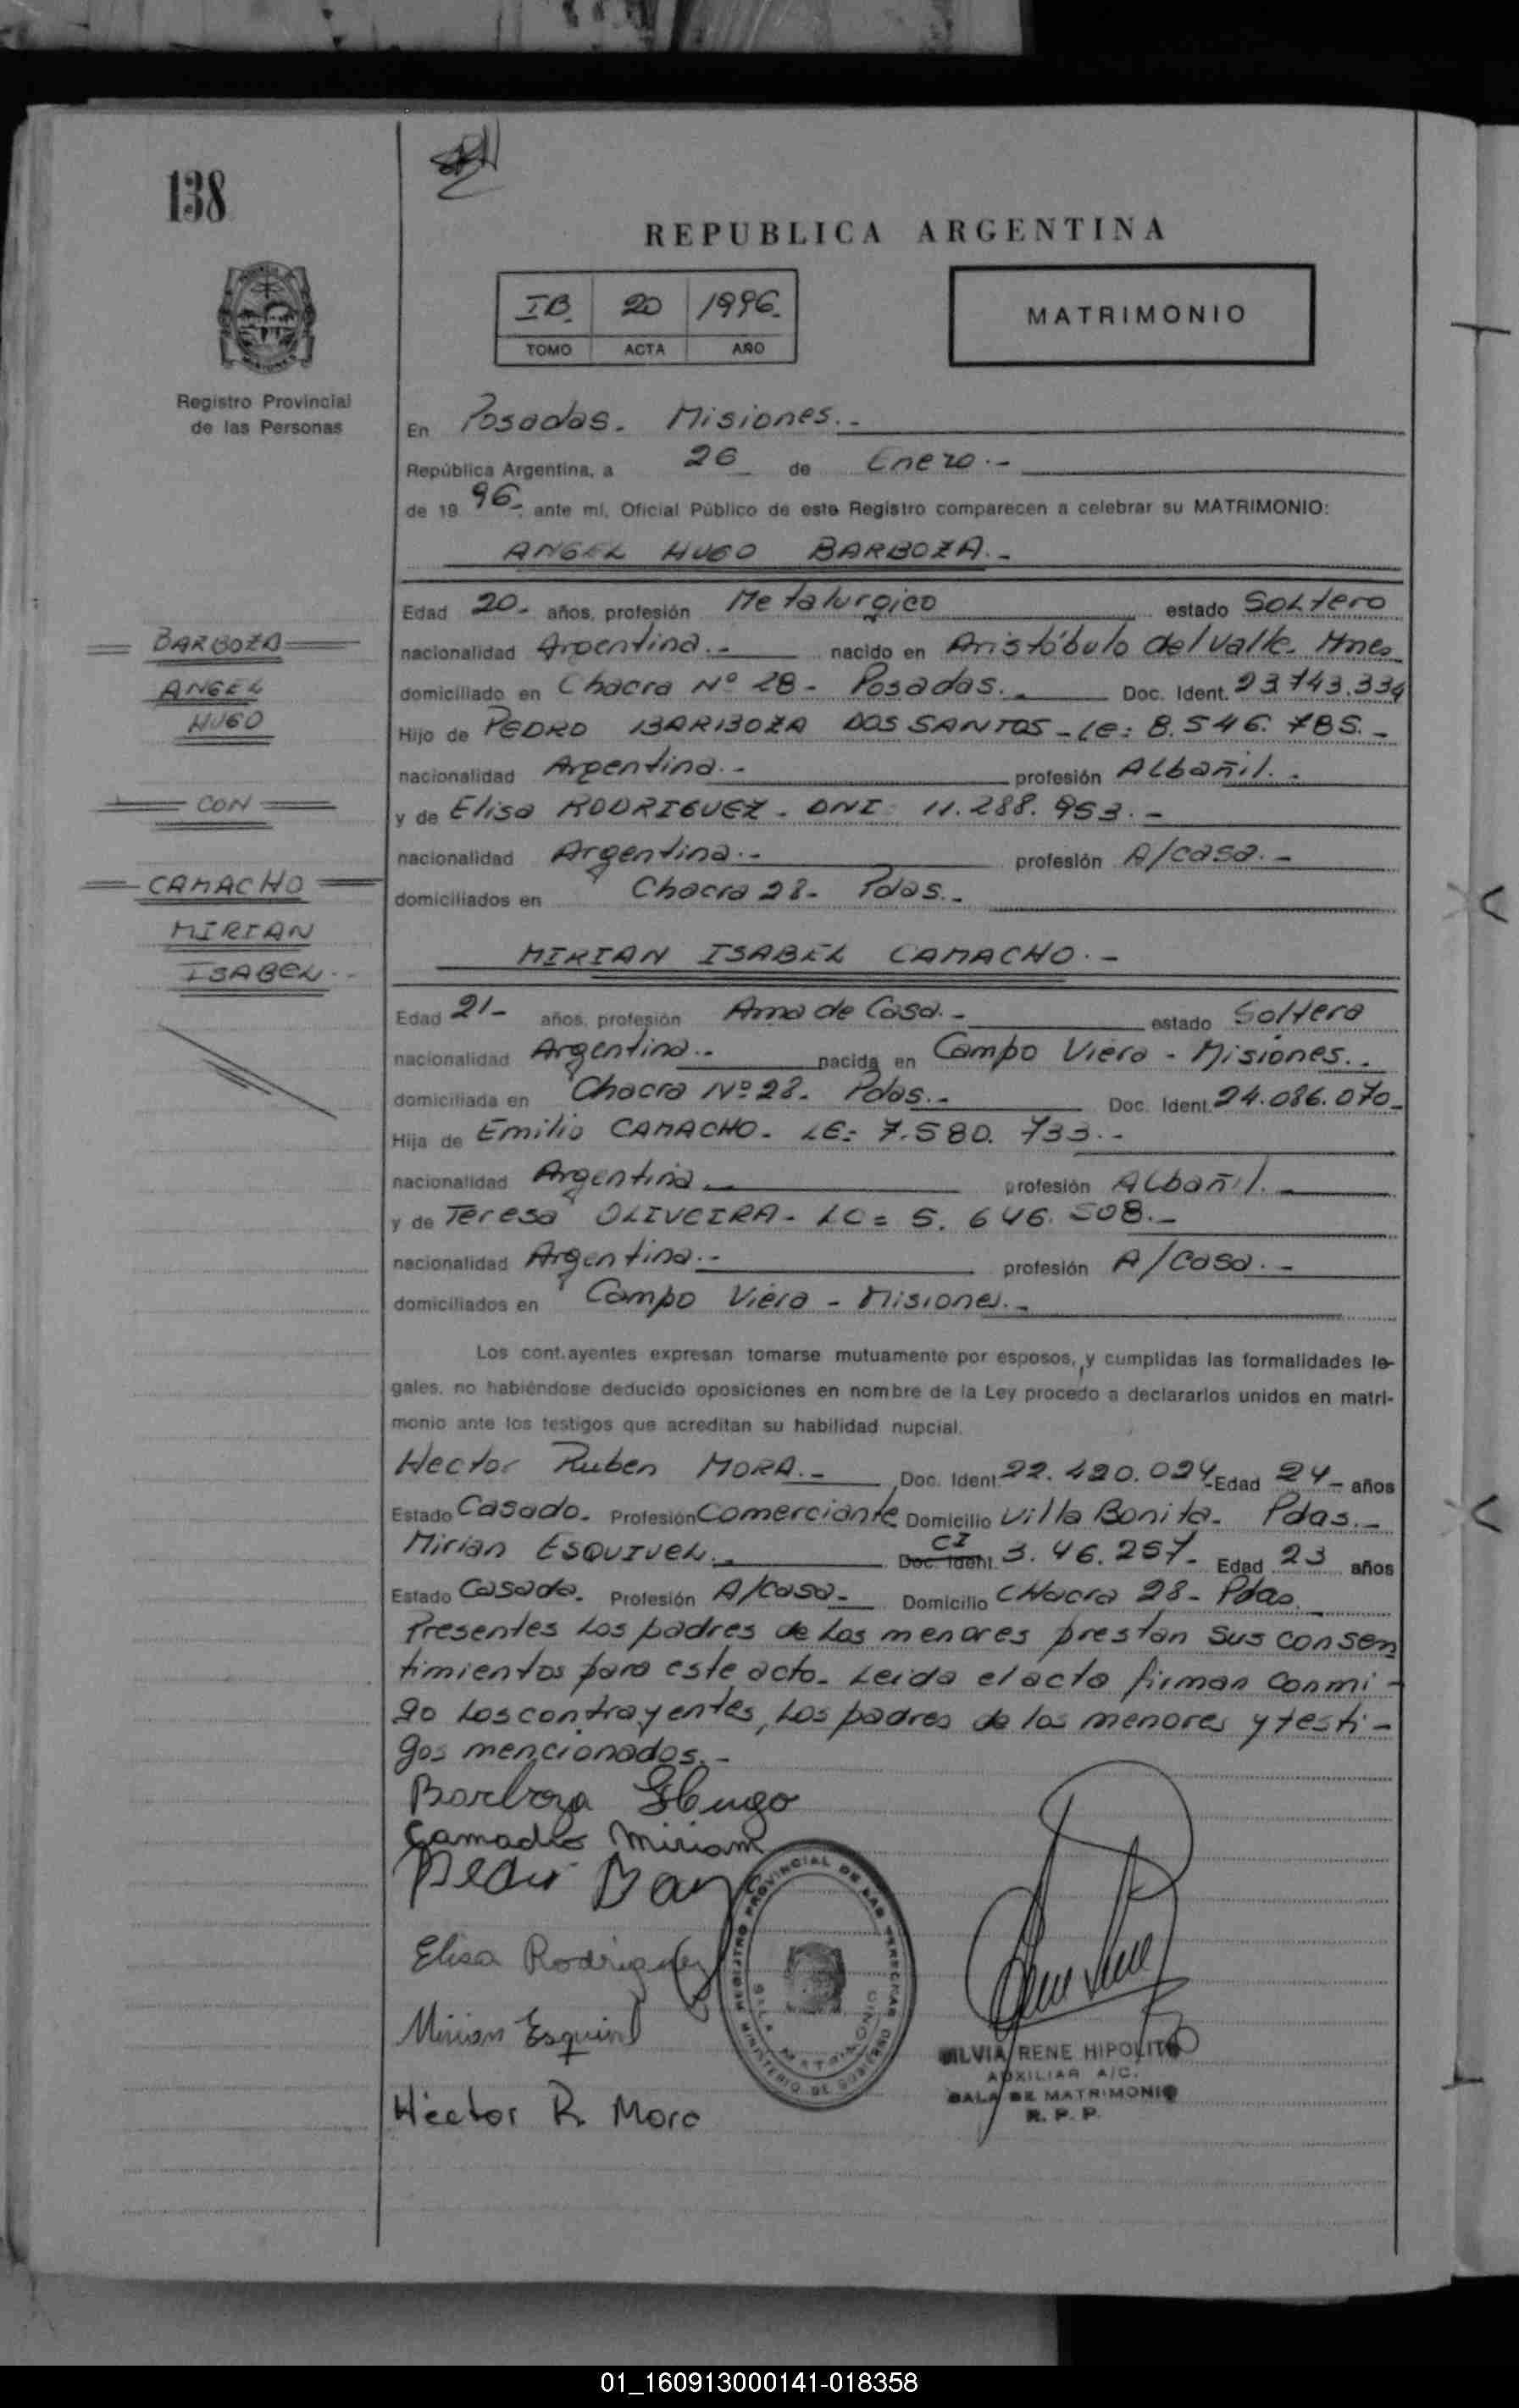 138
REPUBLICA ARGENTINA
IB. 20 1996.
TOMO ACTA AÑO
MATRIMONIO
Registro Provincial
de las Personas
En Posadas. Misiones.-
República Argentina, a 26 de Enero.-
de 19 96- ante mí, Oficial Público de este Registro comparecen a celebrar su MATRIMONIO:
ANGEL HUGO BARBOZA.-
Edad 20- años, profesión Metalurgico estado SOLtero
nacionalidad Argentina.- nacido en Aristóbulo del Valle. Mnes
domiciliado en Chacra Nº 28- Posadas.- Doc. Ident. 23743.334
Hijo de PEDRO BARBOZA DOS SANTOS - LE: 8.546.785.-
nacionalidad Argentina.- profesión ALbañil.-
y de Elisa RODRIGUEZ - DNI: 11.288.953.-
nacionalidad Argentina.- profesión A/casa.-
domiciliados en Chacra 28- Pdas.-
BARBOZA
ANGEL
HUGO
CON
CAMACHO
MIRIAN
ISABEL.-
MIRIAN ISABEL CAMACHO.-
Edad 21- años, profesión Ama de Casa.- estado Soltera
nacionalidad Argentina.- nacida en Campo Viera - Misiones.-
domiciliada en Chacra Nº 28. Pdas.- Doc. Ident. 24.086.070-
Hija de Emilio CAMACHO- LE: 7.580.733.-
nacionalidad Argentina profesión ALbañil.
y de Teresa OLIVEIRA - LC= 5.646.508.-
nacionalidad Argentina.- profesión A/Casa.-
domiciliados en Campo Viera - Misiones.-
Los cont.ayentes expresan tomarse mutuamente por esposos, y cumplidas las formalidades le-
gales, no habiéndose deducido oposiciones en nombre de la Ley procedo a declararlos unidos en matri-
monio ante los testigos que acreditan su habilidad nupcial.
Hector Ruben MORA.- Doc. Ident. 22.420.024- Edad 24- años
Estado Casado. Profesión Comerciante Domicilio Villa Bonita. Pdas.-
Mirian ESQUIVEL.- CI Doc. Ident. 3.46.257- Edad 23 años
Estado Casada. Profesión A/Casa- Domicilio CHacra 28- Pdas.
Presentes Los padres de Los menores prestan sus consen
timientos para este acto. Leida el acta firman Conmi-
go Los contrayentes, Los padres de los menores y testi-
gos mencionados.-
Barboza Hugo
Camacho Miriam
Pedro Bar
Elisa Rodriguez
Mirian Esquivel
Héctor R. Mora
REGISTRO PROVINCIAL DE LAS PERSONAS
SALA MATRIMONIO
MINISTERIO DE GOBIERNO
SILVIA RENE HIPOLITO
AUXILIAR A/C.
SALA DE MATRIMONIO
R. P. P.
01_160913000141-018358